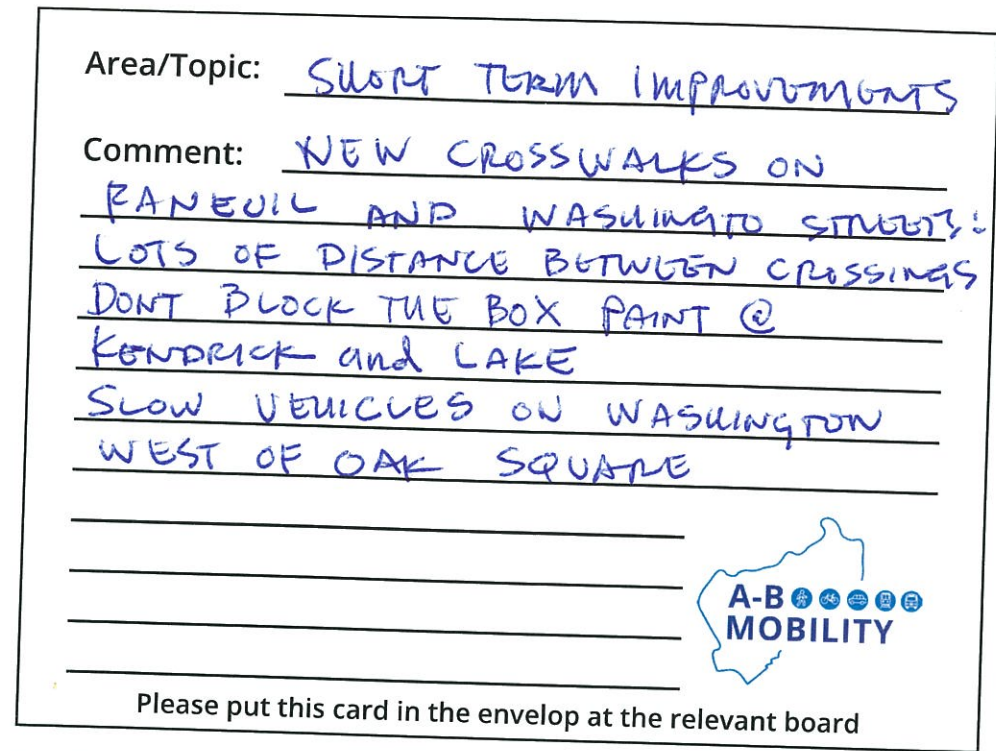 Area/Topic: SHORT TERM IMPROVEMENTS
Comment: NEW CROSSWALKS ON
FANEUIL AND WASHINGTO STREETS:
LOTS OF DISTANCE BETWEEN CROSSINGS
DONT BLOCK THE BOX PAINT @
KENDRICK and LAKE
SLOW VEHICLES ON WASHINGTON
WEST OF OAK SQUARE
A-B
MOBILITY
Please put this card in the envelop at the relevant board